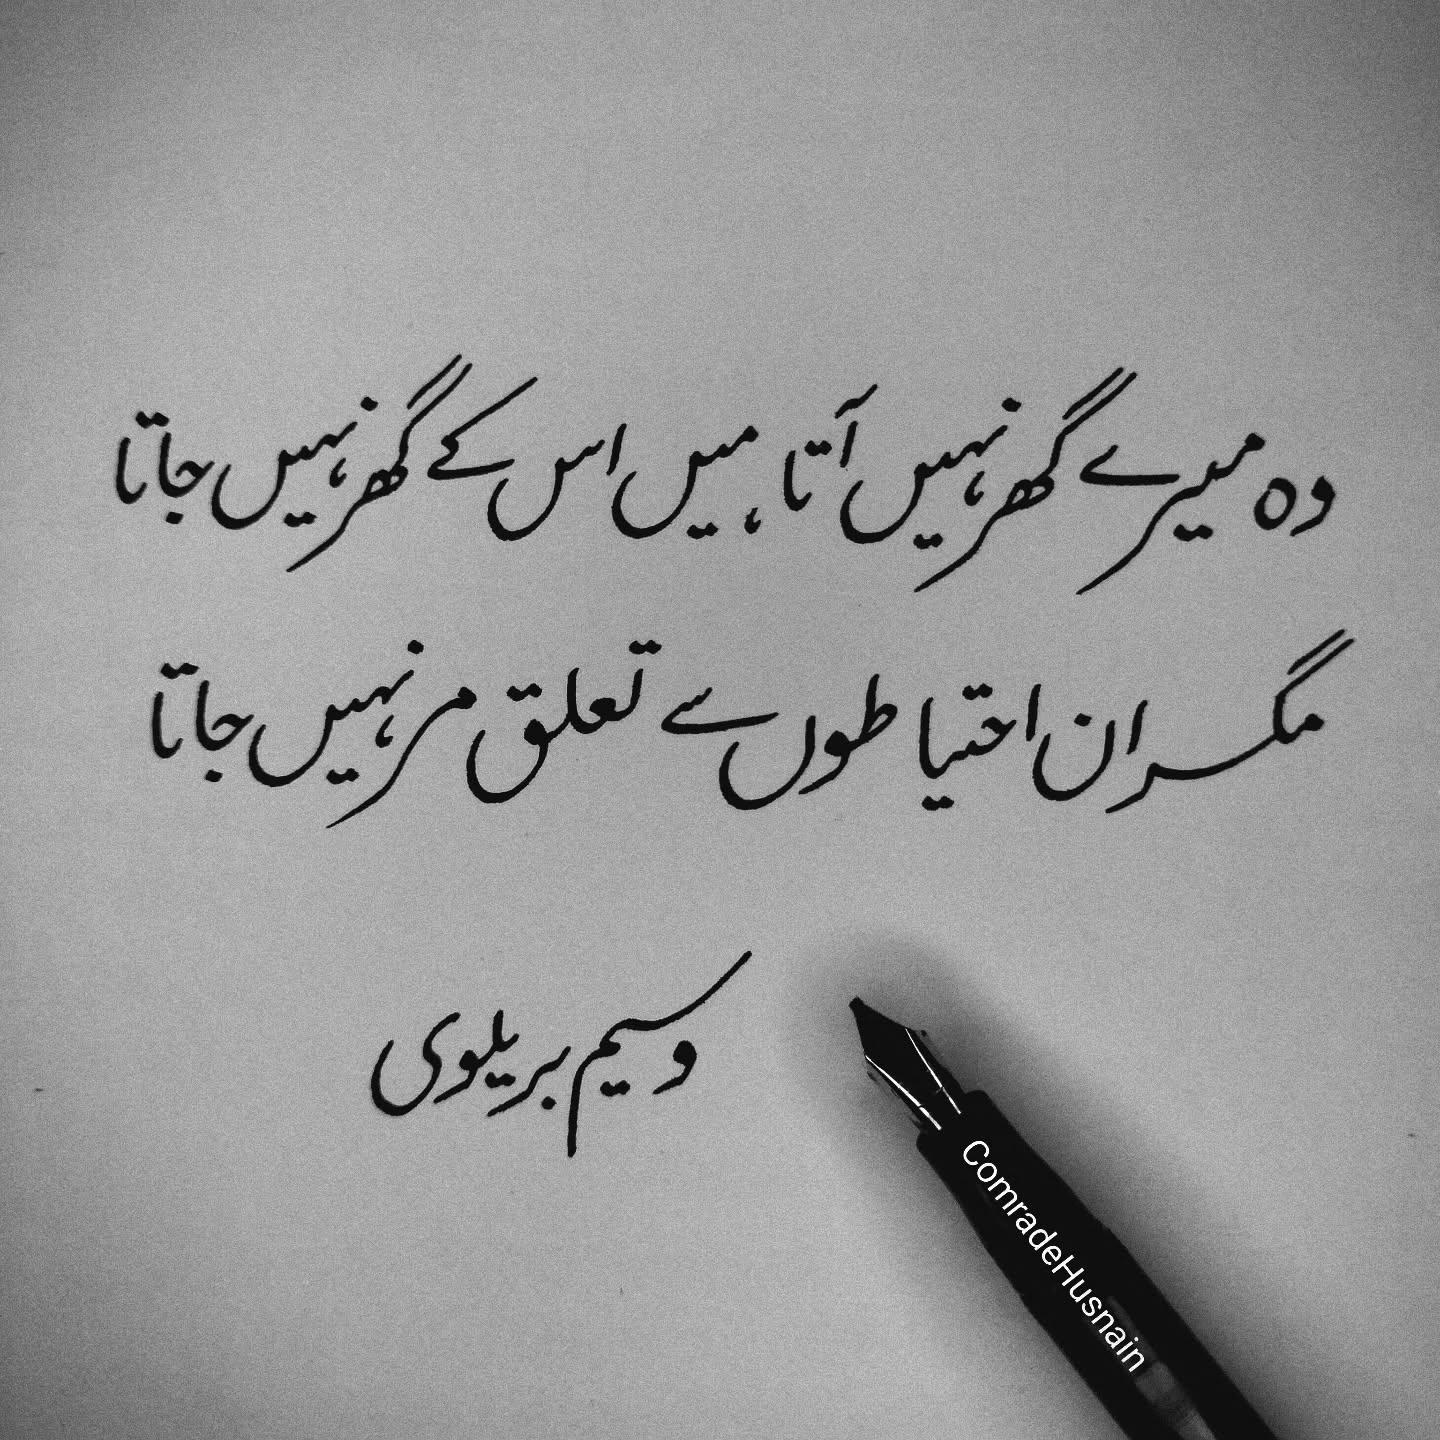 وہ میرے گھر نہیں آتا، میں اس کے گھر نہیں جاتا
مگر ان احتیاطوں سے تعلق مر نہیں جاتا
وسیم بریلوی
ComradeHusnain